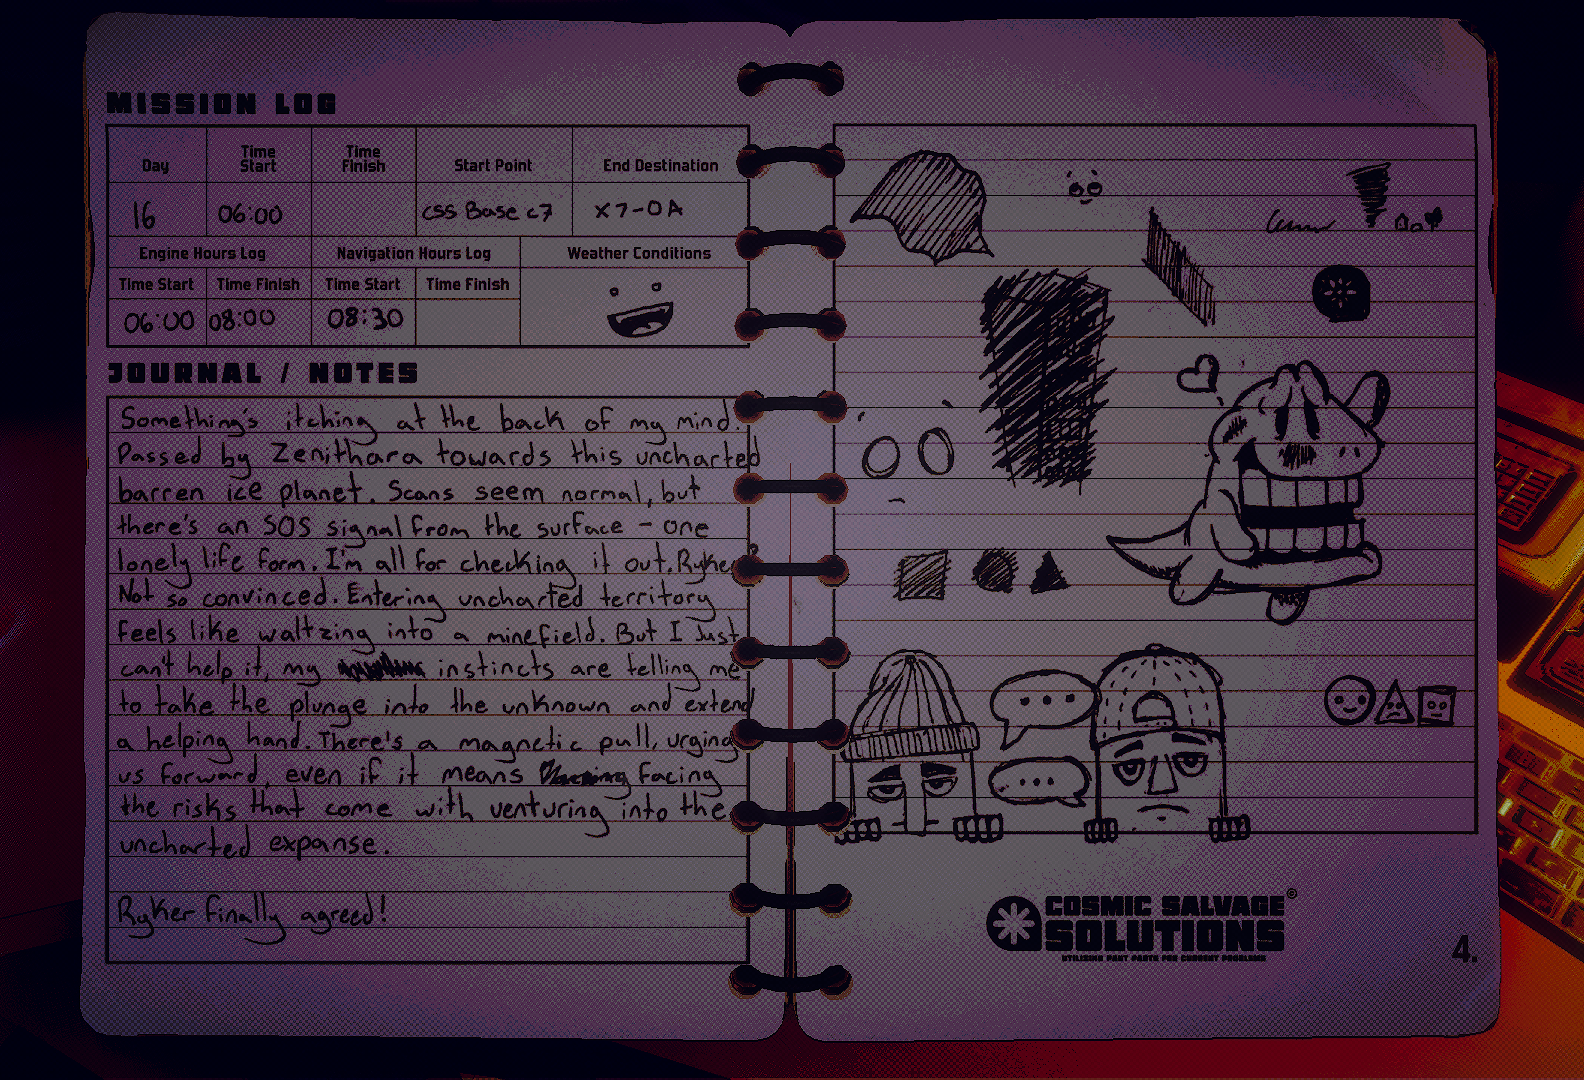 MISSION LOG
Day Time Start Time Finish Start Point End Destination
16 06:00 CSS Base C7 X7-0A
Engine Hours Log Navigation Hours Log Weather Conditions
Time Start Time Finish Time Start Time Finish
06:00 08:00 08:30
JOURNAL / NOTES
Something's itching at the back of my mind.
Passed by Zenithara towards this uncharted
barren ice planet. Scans seem normal, but
there's an SOS signal from the surface - one
lonely life form. I'm all for checking it out. Ryker?
Not so convinced. Entering uncharted territory
feels like waltzing into a minefield. But I just
can't help it, my instincts are telling me
to take the plunge into the unknown and extend
a helping hand. There's a magnetic pull, urging
us forward, even if it means facing
the risks that come with venturing into the
uncharted expanse.
Ryker finally agreed!
COSMIC SALVAGE ©
SOLUTIONS
UTILISING PAST PARTS FOR CURRENT PROBLEMS
4.